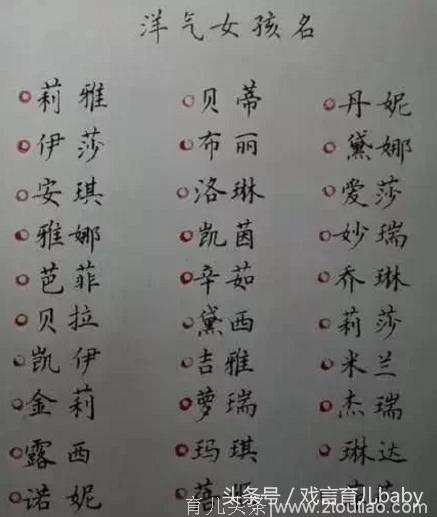 洋气女孩名
莉雅 贝蒂 丹妮
伊莎 布丽 黛娜
安琪 洛琳 爱莎
雅娜 凯茵 妙瑞
芭菲 辛茹 乔琳
贝拉 黛西 莉莎
凯伊 吉雅 米兰
金莉 萝瑞 杰瑞
露西 玛琪 琳达
诺妮
头条号／戏言育儿baby
育儿头条 www.zloutiao.com